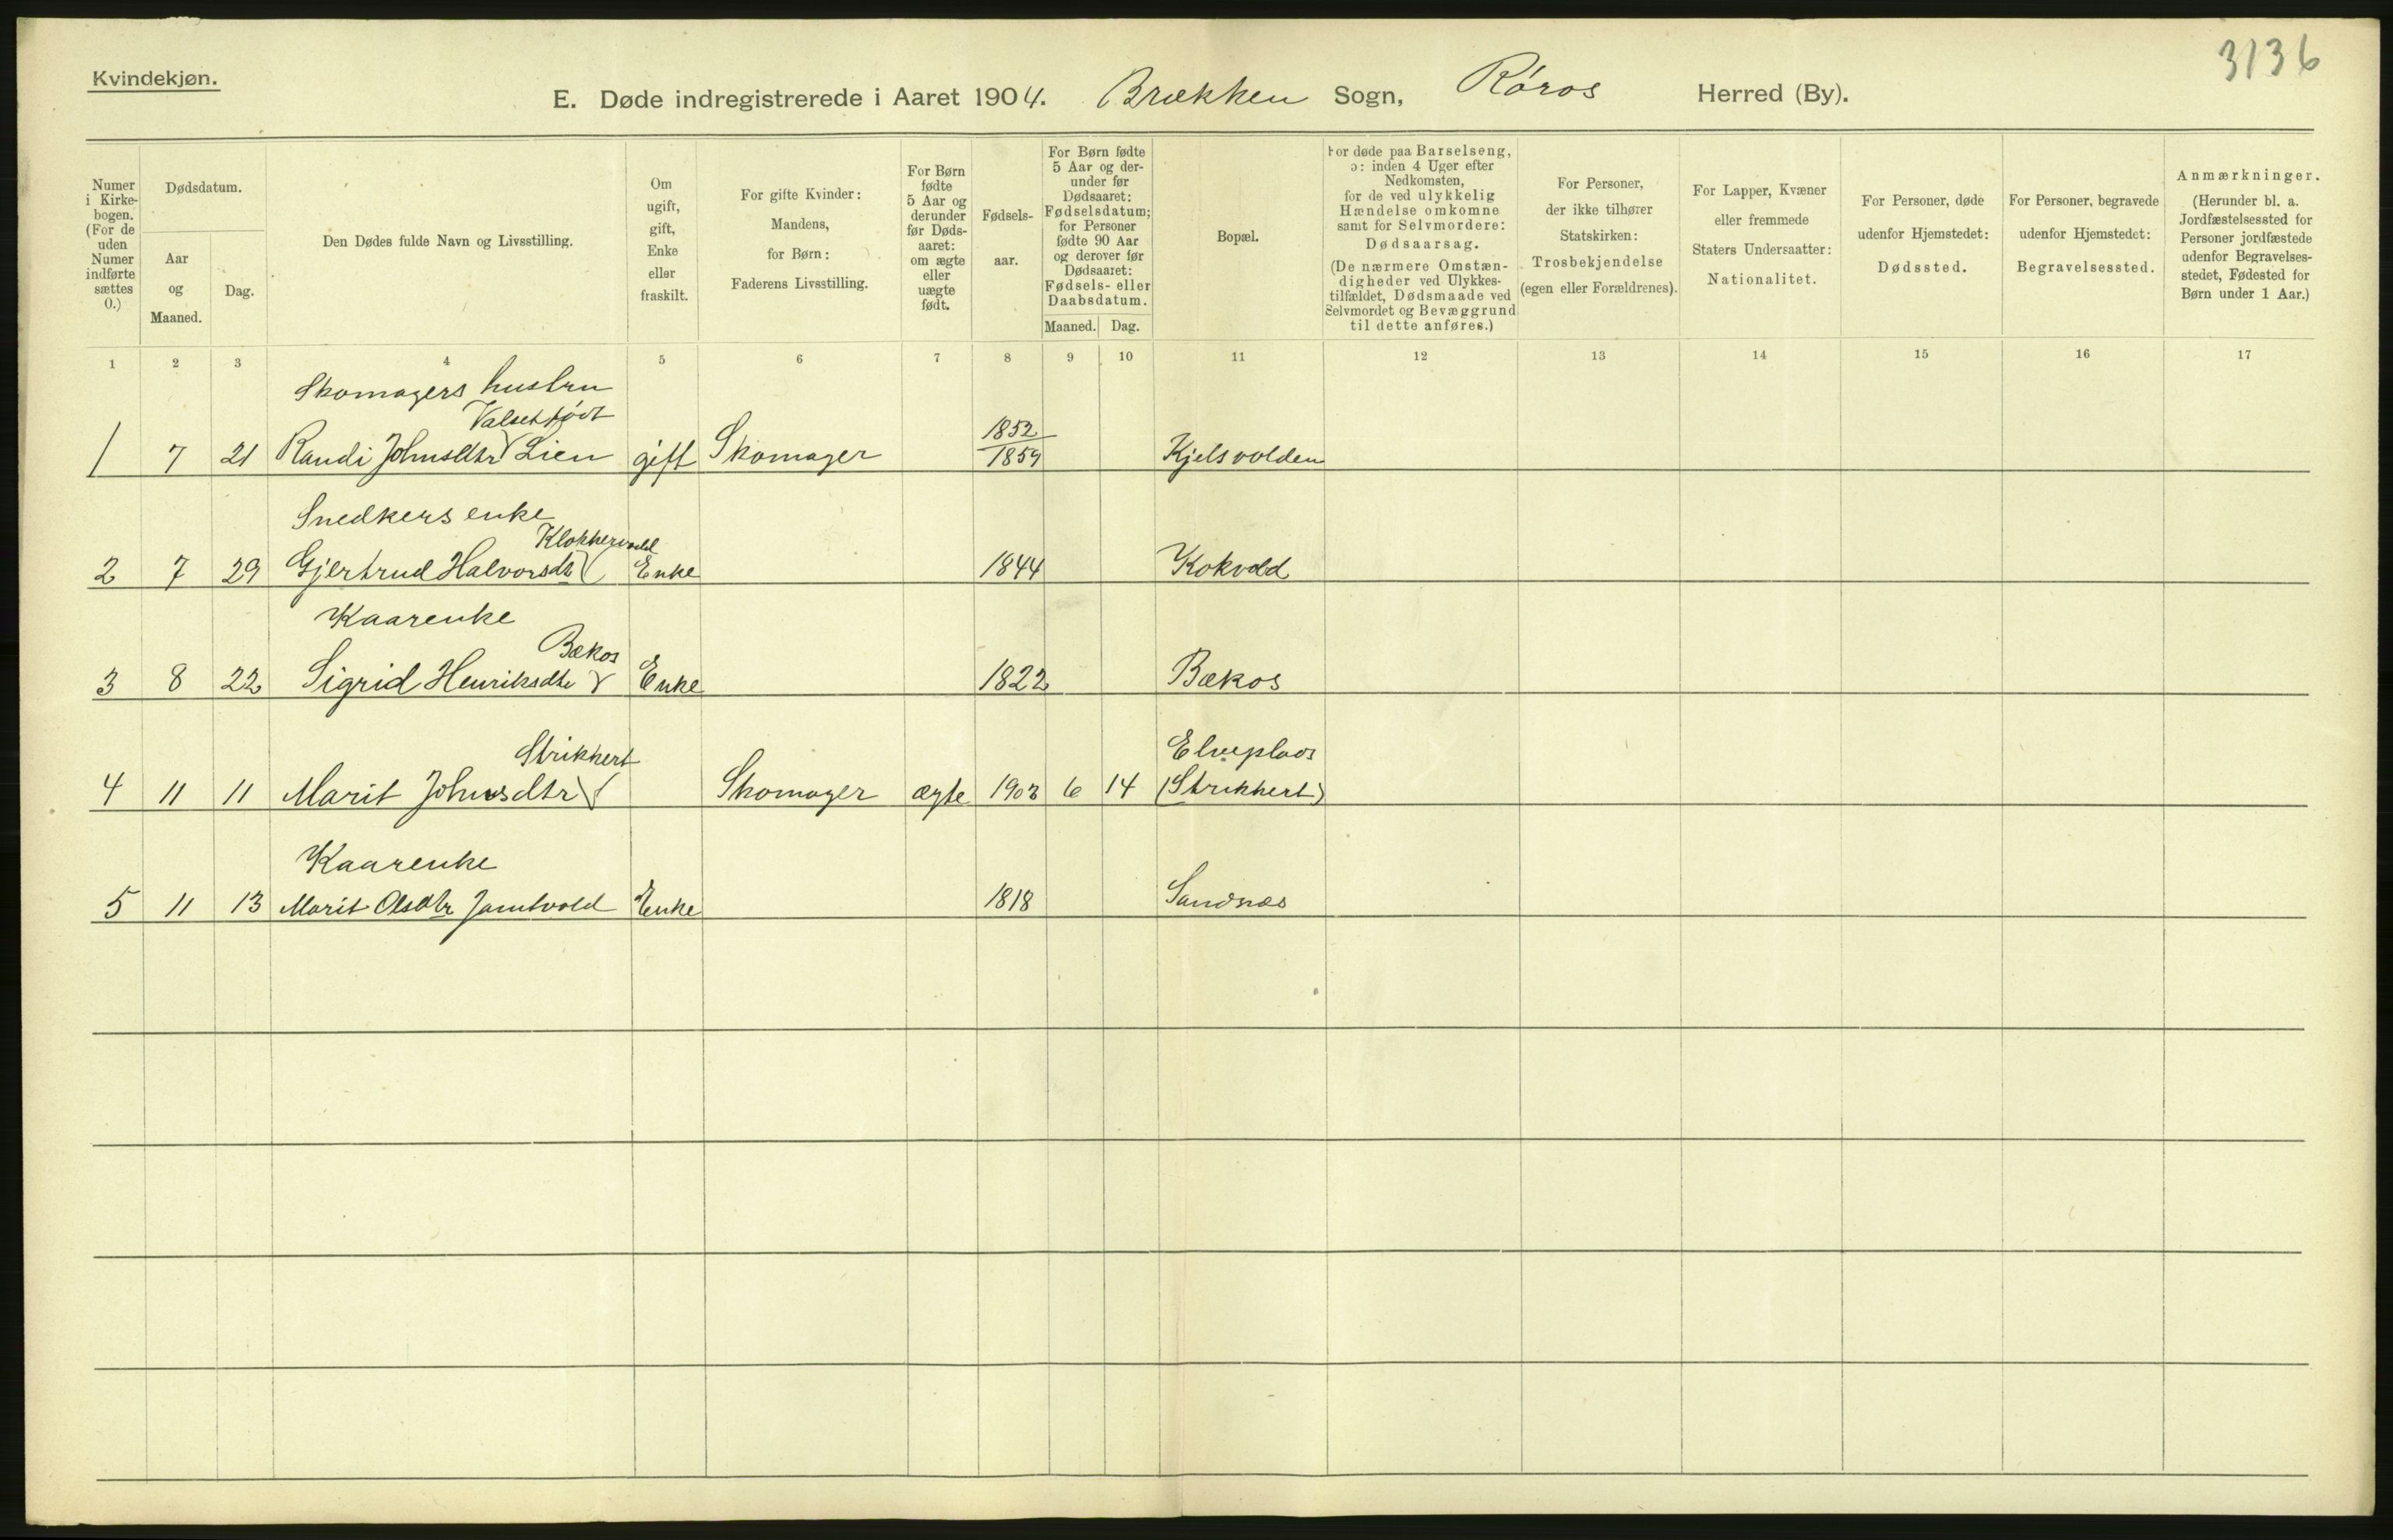 3136
Kvindekjøn.
E. Døde indregistrerede i Aaret 1904. Brækken Sogn, Røros Herred (By).
Numer i Kirkebogen. (For de uden Numer indførte sættes 0.)
Dødsdatum.
Aar og Maaned.
Dag.
Den Dødes fulde Navn og Livsstilling.
Om ugift, gift, Enke eller fraskilt.
For gifte Kvinder: Mandens, for Børn: Faderens Livsstilling.
For Børn fødte 5 Aar og derunder før Dødsaaret: om ægte eller uægte født.
Fødselsaar.
For Børn fødte 5 Aar og derunder før Dødsaaret: Fødselsdatum; for Personer fødte 90 Aar og derover før Dødsaaret: Fødsels- eller Daabsdatum.
Maaned. Dag.
Bopæl.
For døde paa Barselseng, ɔ: inden 4 Uger efter Nedkomsten, for de ved ulykkelig Hændelse omkomne samt for Selvmordere: Dødsaarsag. (De nærmere Omstændigheder ved Ulykkestilfældet, Dødsmaade ved Selvmordet og Bevæggrund til dette anføres.)
For Personer, der ikke tilhører Statskirken: Trosbekjendelse (egen eller Forældrenes).
For Lapper, Kvæner eller fremmede Staters Undersaatter: Nationalitet.
For Personer, døde udenfor Hjemstedet: Dødssted.
For Personer, begravede udenfor Hjemstedet: Begravelsessted.
Anmærkninger. (Herunder bl. a. Jordfæstelsessted for Personer jordfæstede udenfor Begravelsesstedet, Fødested for Børn under 1 Aar.)
1 2 3 4 5 6 7 8 9 10 11 12 13 14 15 16 17
Skomagers hustru
Valset født
1 7 21 Randi Johnsdtr Lien gift Skomager 1852 1859 Kjelsvolden
Snedkers enke
Klokkervold
2 7 29 Gjertrud Halvorsdtr Enke 1844 Kokvold
Kaarenke
Bækos
3 8 22 Sigrid Henriksdtr Enke 1822 Bækos
Strikkert Elveplads
4 11 11 Marit Johnsdtr Skomager ægte 1903 6 14 (Strikkert)
Kaarenke
5 11 13 Marit Olsdtr Jamtvold Enke 1818 Sandnæs